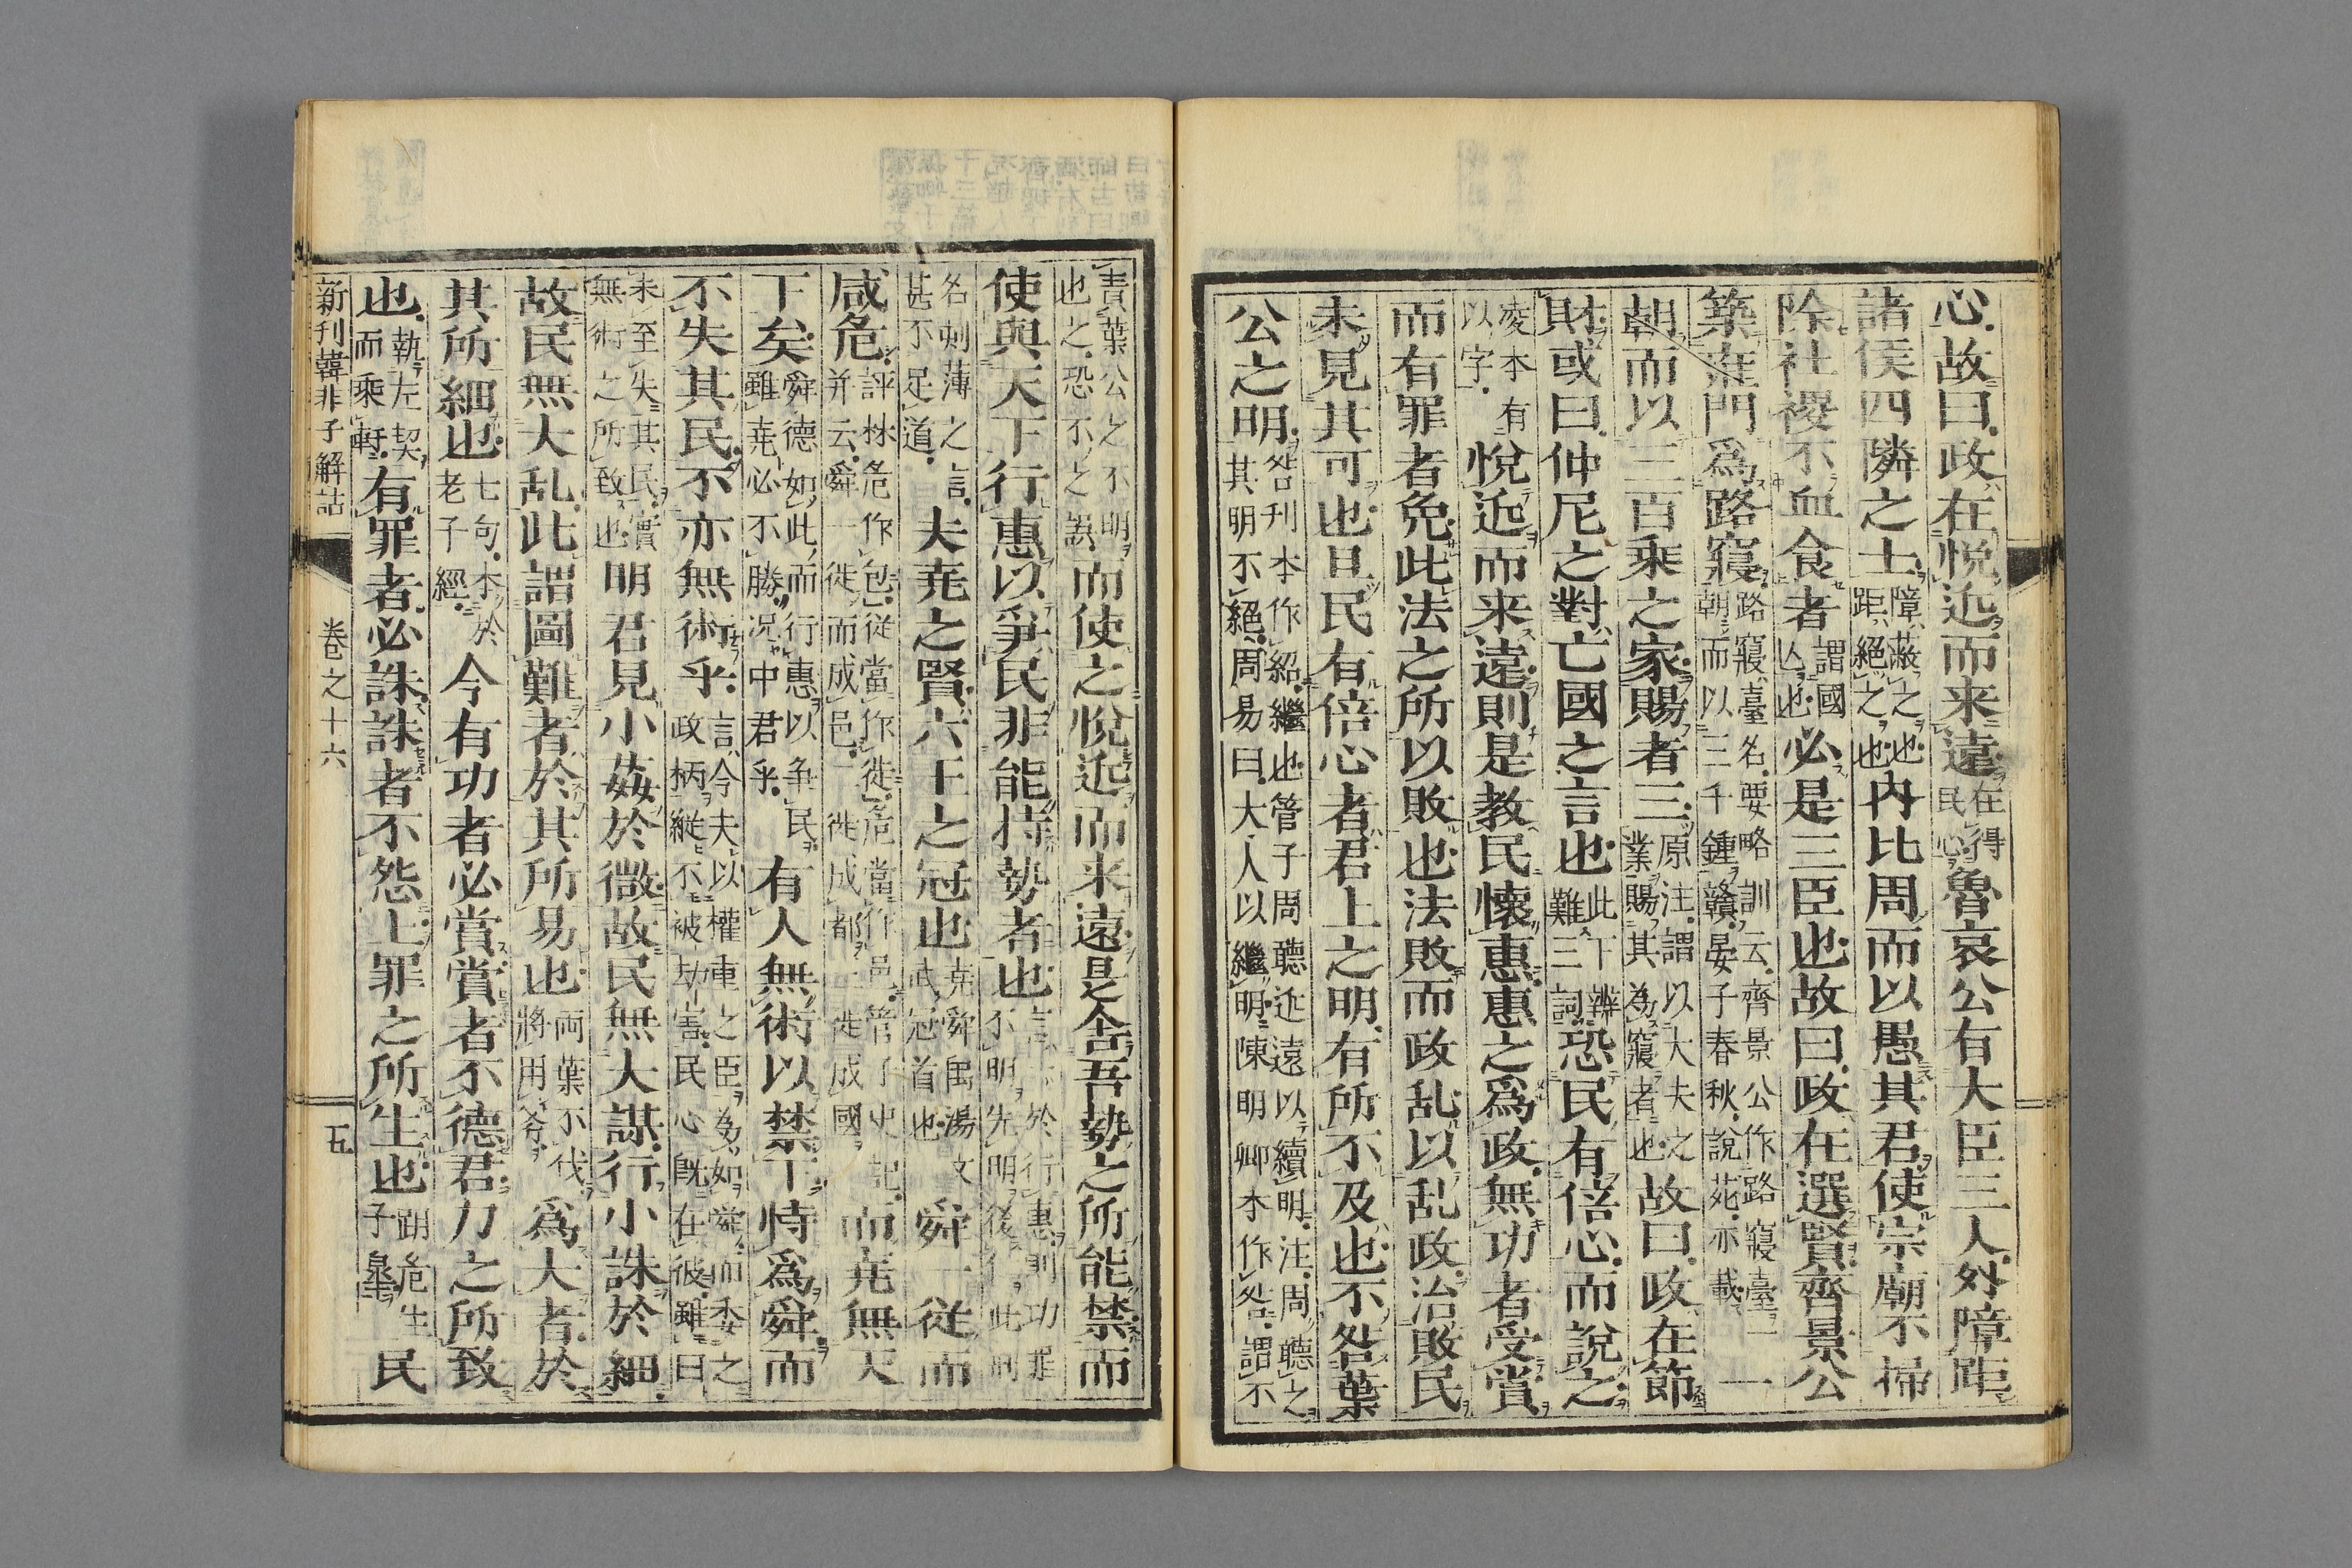 心故曰政在悦近而来遠在得民心魯哀公有大臣三人外障距
諸侯四隣之士障蔽之也距絕之也内比周而以愚其君使宗廟不掃
除社稷不血食者謂國亾也必是三臣也故曰政在選賢齊景公
築雍門爲路寢路寢臺名要略訓云齊景公作路寢臺一朝而以三千鍾贛晏子春秋說苑亦載一
朝而以三百乗之家賜者三原注謂以大夫之業賜其為寢者也故曰政在節
財或曰仲尼之對亡國之言也此下辨難三詞恐民有倍心而說之
凌本有以字悅近而来遠則是教民懐惠惠之爲政無功者受賞
而有罪者免此法之所以敗也法敗而政乱以乱政治敗民
未見其可也且民有倍心者君上之明有所不及也不咎葉
公之明咎刋本作紹繼也管子周聽近遠以續明注周聽之其明不絕周易曰大人以繼明陳明卿本作咎謂不
責葉公之不明也之恐不之誤而使之悅近而来遠是舍吾勢之所能禁而
使與天下行惠以爭民非能持勢者也言於行惠則功罪不明先明後行此則
名刺薄之言甚不足道夫尭之賢六王之冠也尭舜禹湯文武冠首也舜一從而
咸危評林危作包從當作徙危當作邑管子史記并云舜一徙而成邑二徙成都三徙成國而尭無天
下矣舜德如此而行惠以争民雖尭必不勝况中君乎有人無術以禁下恃爲舜而
不失其民不亦無術乎言今夫以權重之臣為如舜而委之政柄縱不被劫害民心既在彼雖曰
未至失其民實無術之所致也明君見小姦於微故民無大謀行小誅於細
故民無大乱此謂圖難者於其所易也両葉不伐將用斧爲大者於
其所細也七句本於老子經今有功者必賞賞者不德君力之所致
也執左契而乗軒有罪者必誅誅者不怨上罪之所生也跀危生子皐民
新刋韓非子解詁 卷之十六 五